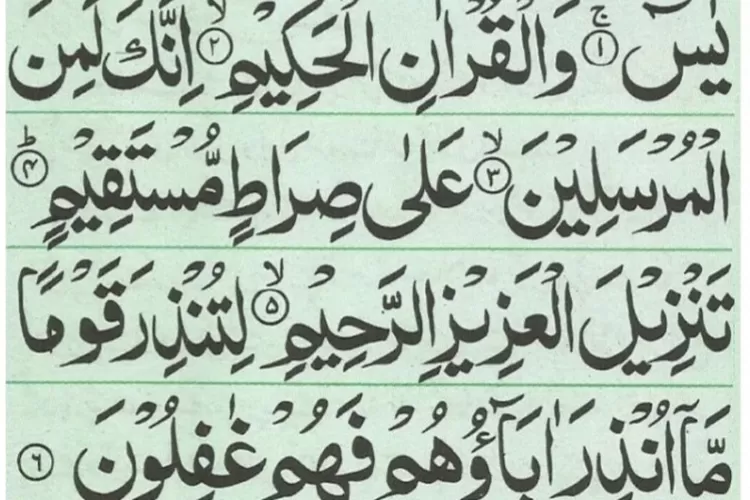 يٰسٓ ۚ‏﴿۱﴾ وَالْقُرْاٰنِ الْحَكِيْمِ ۙ‏﴿۲﴾ اِنَّكَ لَمِنَ
الْمُرْسَلِيْنَ ۙ‏﴿۳﴾ عَلٰى صِرَاطٍ مُّسْتَقِيْمٍ ؕ‏﴿۴﴾
تَنْزِيْلَ الْعَزِيْزِ الرَّحِيْمِ ۙ‏﴿۵﴾ لِتُنْذِرَ قَوْمًا
مَّاۤ اُنْذِرَ اٰبَآؤُهُمْ فَهُمْ غٰفِلُوْنَ ‏﴿۶﴾